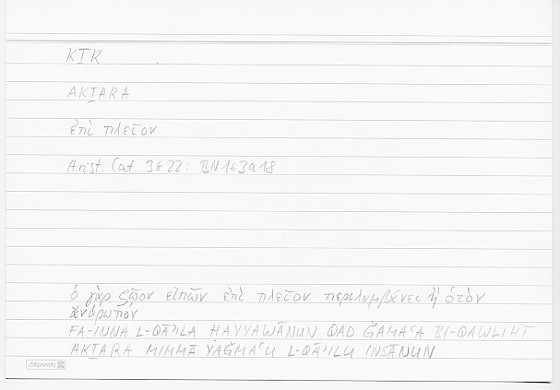 KṮR
AKṮARA
ἐπὶ πλεῖον
Arist. Cat. 3b22: BN 163a18
ὁ γὰρ ζῷον εἰπὼν ἐπὶ πλεῖον περιλαμβάνει ἢ ὁ τὸν
ἄνθρωπον
FA-INNA L-QĀʾILA ḤAYYAWĀNUN QAD ǦAMAʿA BI-QAWLIHĪ
AKṮARA MIMMĀ YAǦMAʿU L-QĀʾILU INSĀNUN